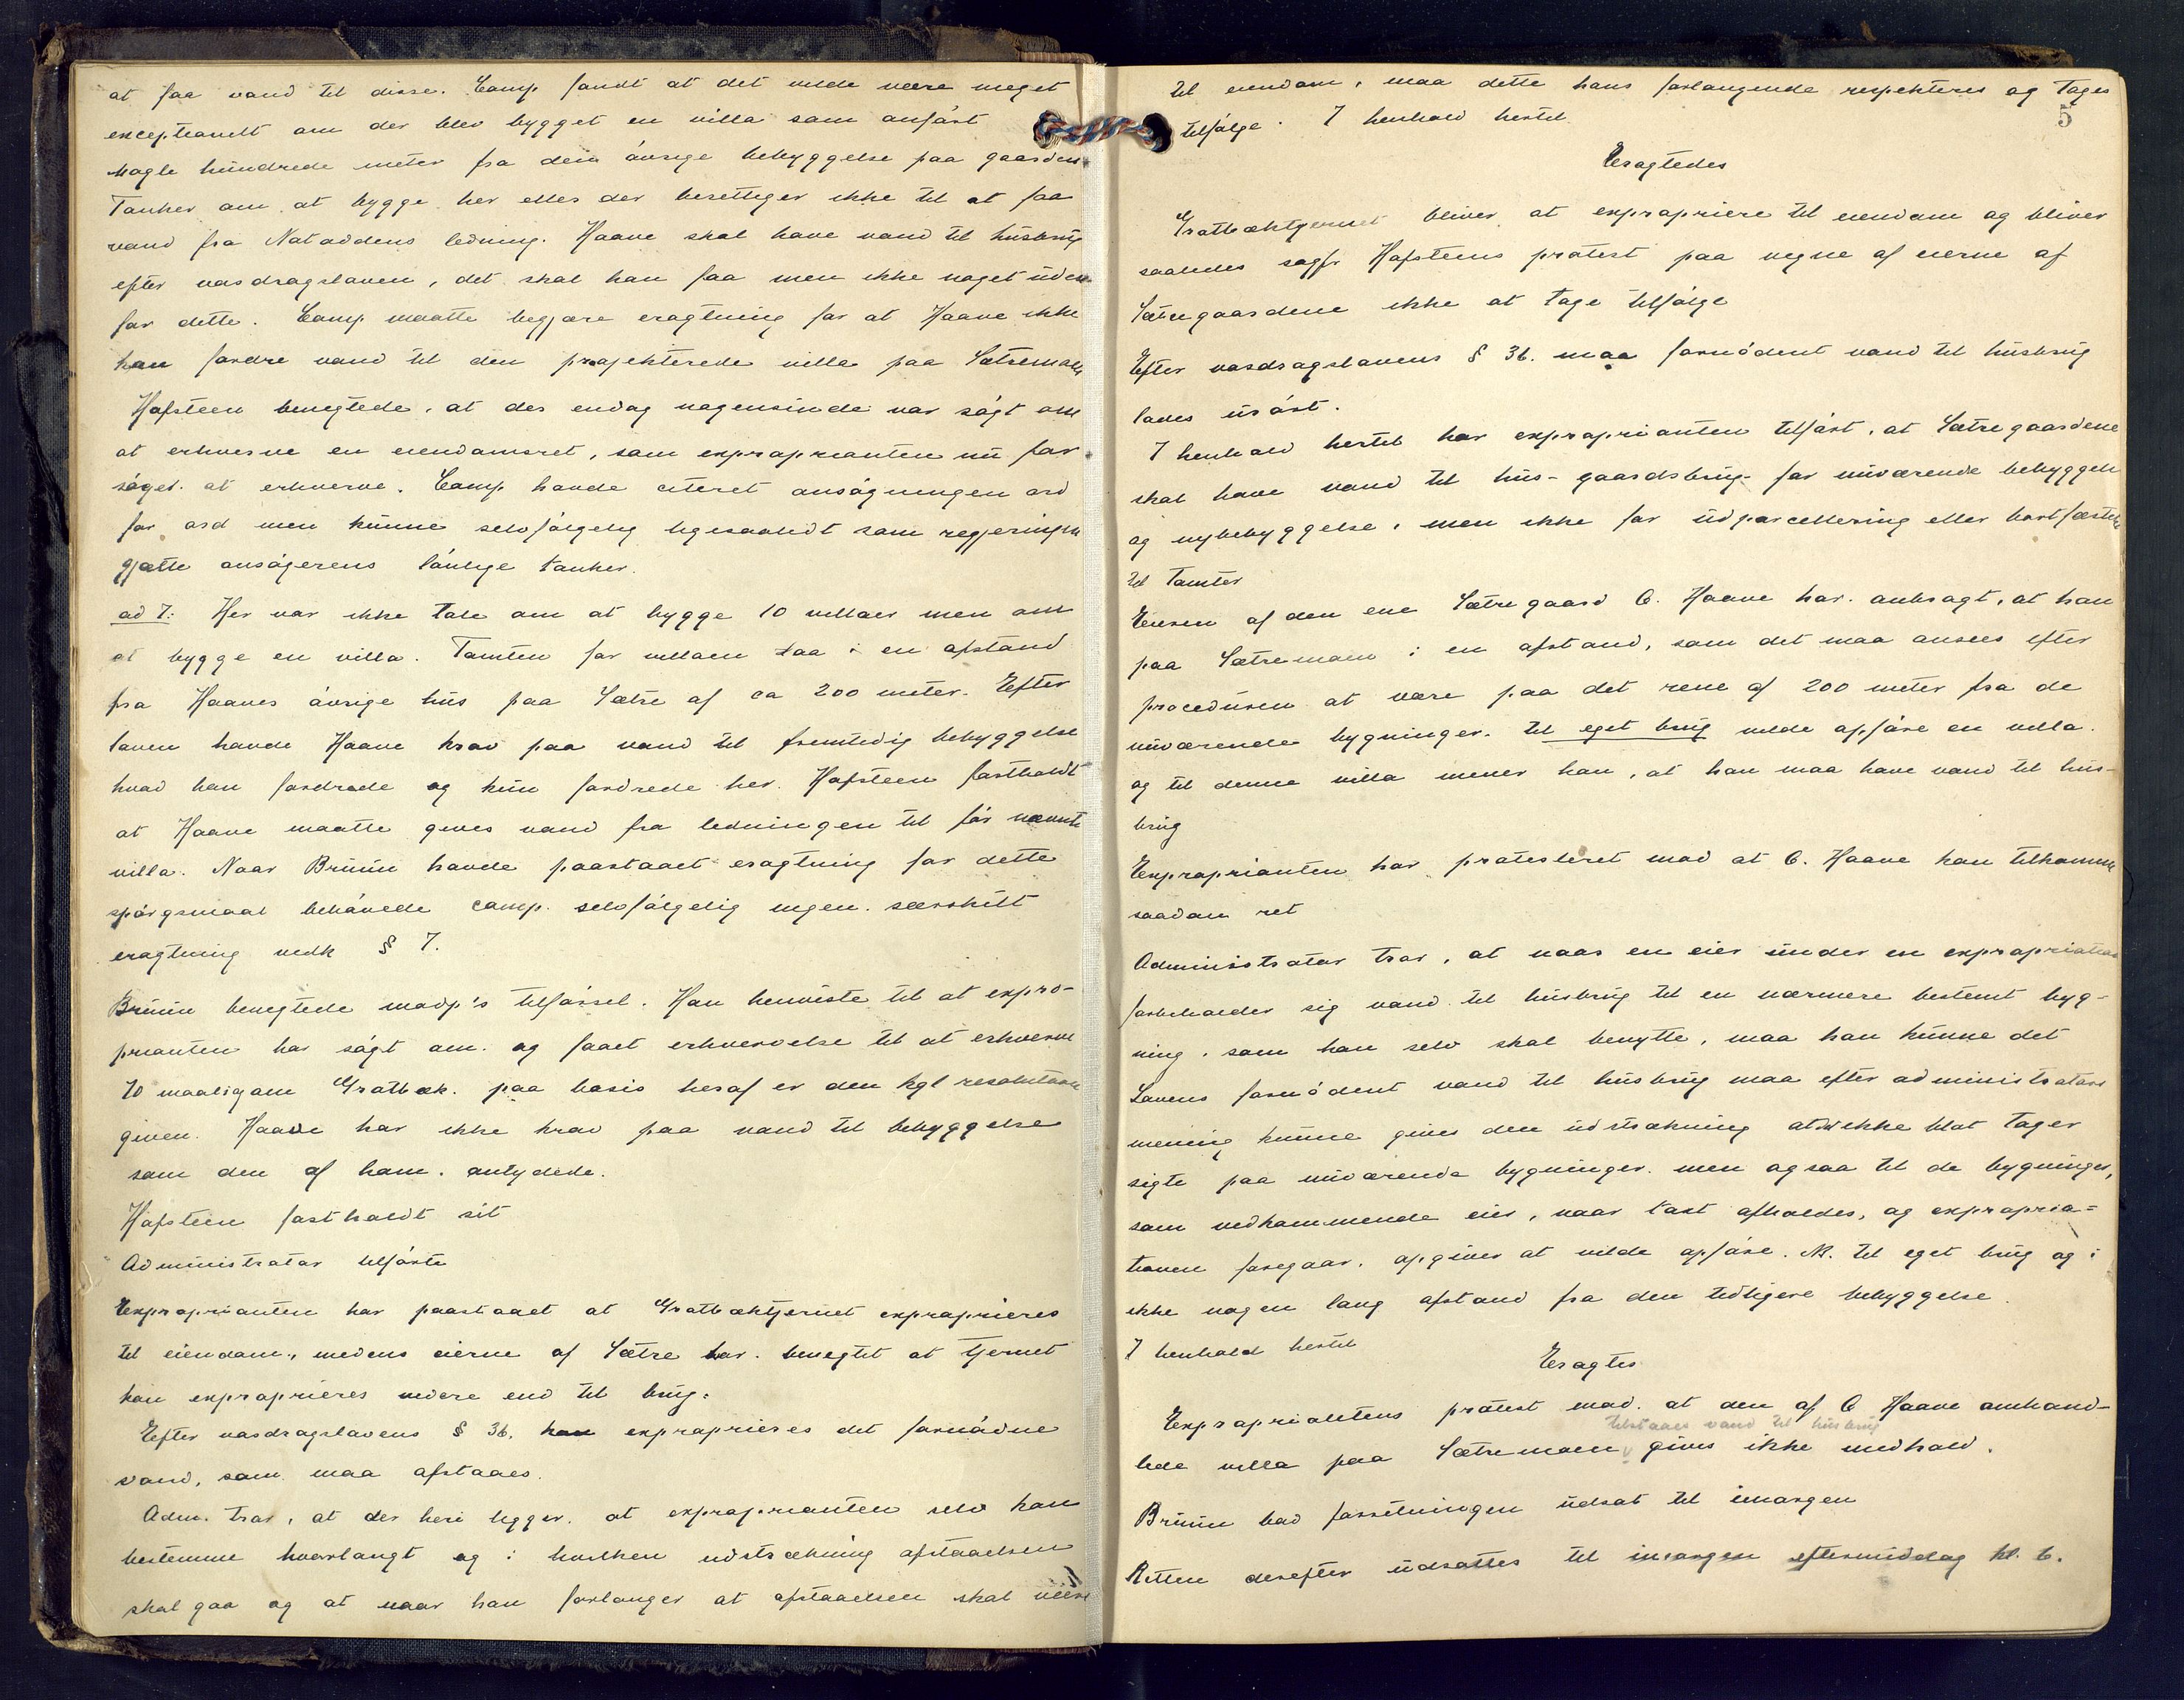 at faa vand til disse. Comp. fandt at det vilde være meget
exceptionelt om der blev bygget en villa som anført
nogle hundrede meter fra den øvrige bebyggelse paa gaarden
Tanker om at bygge her eller der berettiger ikke til at faa
vand fra Notoddens ledning. Haave skal have vand til husbrug
efter vasdragsloven, det skal han faa men ikke noget uden-
for dette. Comp. maatte begjære eragtning for at Haave ikke
kan fordre vand til den projekterede villa paa Sætremoen
Hofsteen benegtede, at der endog nogensinde var søgt om
at erhverve en eiendomsret, som exproprianten nu for-
søger at erhverve. Comp. havde citeret ansøgningen ord
for ord men kunne selvfølgelig ligesaalidt som regjeringen
gjætte ansøgerens lønlige tanker.
ad 7: Her var ikke tale om at bygge 10 villaer men om
at bygge en villa. Tomten for villaen laa i en afstand
fra Haaves øvrige hus paa Sætre af ca 200 meter. Efter
loven havde Haave krav paa vand til fremtidig bebyggelse
hvad han fordrede og kun fordrede her. Hofsteen fastholdt
at Haave maatte gives vand fra ledningen til før nævnte
villa. Naar Bruun havde paastaaet eragtning for dette
spørgsmaal behøvede comp. selvfølgelig ingen særskilt
eragtning vedk § 7.
Bruun benegtede modp's tilførsel. Han henviste til at expro-
prianten har søgt om og faaet erhvervelse til at erhverve
10 maal igjen Gratbæk. paa basis heraf er den kgl resolution
given. Haave har ikke krav paa vand til bebyggelse
som den af ham antydede.
Hofsteen fastholdt sit
Administrator tilførte
Exproprianten har paastaaet at Gratbæktjernet exproprieres
til eiendom, medens eierne af Sætre har benegtet at tjernet
kan exproprieres videre end til brug.
Efter vasdragslovens § 36. kan exproprieres det fornødne
vand, som maa afstaaes.
Adm. tror, at der heri ligger, at exproprianten selv kan
bestemme hvorlangt og i hvilken udstrækning afstaaelsen
skal gaa og at naar han forlanger at afstaaelsen skal være
5
til eiendom, maa dette hans forlangende respekteres og tages
tilfølge. I henhold hertil
Eragtedes
Gratbæktjernet bliver at expropriere til eiendom og bliver
saaledes sagf. Hofsteens protest paa vegne af eierne af
Sætregaardene ikke at tage tilfølge
Efter vasdragslovens § 36. maa fornødent vand til husbrug
lades urørt.
I henhold hertil har exproprianten tilført, at Sætregaardene
skal have vand til hus- gaardsbrug for nuværende bebyggelse
og nybebyggelse, men ikke for udparcellering eller bortfæstelse
til Tomter
Eieren af den ene Sætregaard O. Haave har anbragt, at han
paa Sætremoen i en afstand, som det maa ansees efter
proceduren at være paa det rene af 200 meter fra de
nuværende bygninger til eget brug vilde opføre en villa.
og til denne villa mener han, at han maa have vand til hus-
brug
Exproprianten har protesteret mod at O. Haave kan tilkomme
saadan ret
Administrator tror, at naar en eier under en expropriation
forbeholder sig vand til husbrug til en nærmere bestemt byg-
ning, som han selv skal benytte, maa han kunne det
Lovens fornødent vand til husbrug maa efter administrators
mening kunne gives den udstrækning at det ikke blot tager
sigte paa nuværende bygninger men ogsaa til de bygninger,
som vedkommende eier, naar takst afholdes, og expropria-
tionen foregaar, opgiver at vilde opføre. N. til eget brug og i
ikke nogen lang afstand fra den tidligere bebyggelse.
I henhold hertil
Eragtes
Expropriantens protest mod at den af O Haave omhand-
tilstaaes vand til husbrug
lede villa paa Sætremoen gives ikke medhold.
Bruun bad forretningen udsat til imorgen
Retten derefter udsattes til imorgen eftermiddag kl. 6.